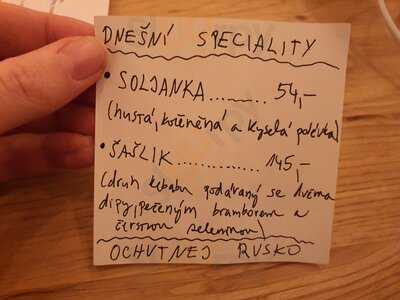 DNEŠNÍ SPECIALITY
• SOLJANKA......... 54,-
(hustá, kořeněná a kyselá polévka)
• ŠAŠLIK.............. 145,-
(druh kebabu podávaný se dvěma
dipy, pečeným bramborem a
čerstvou zeleninou)
OCHUTNEJ RUSKO